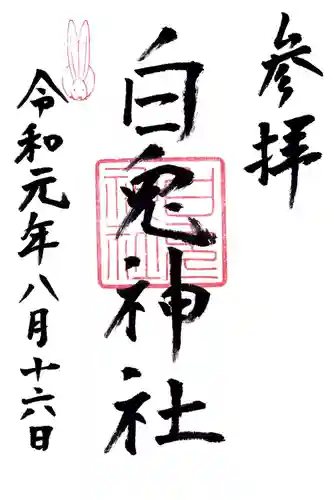 参拝
白兎神社
令和元年八月十六日